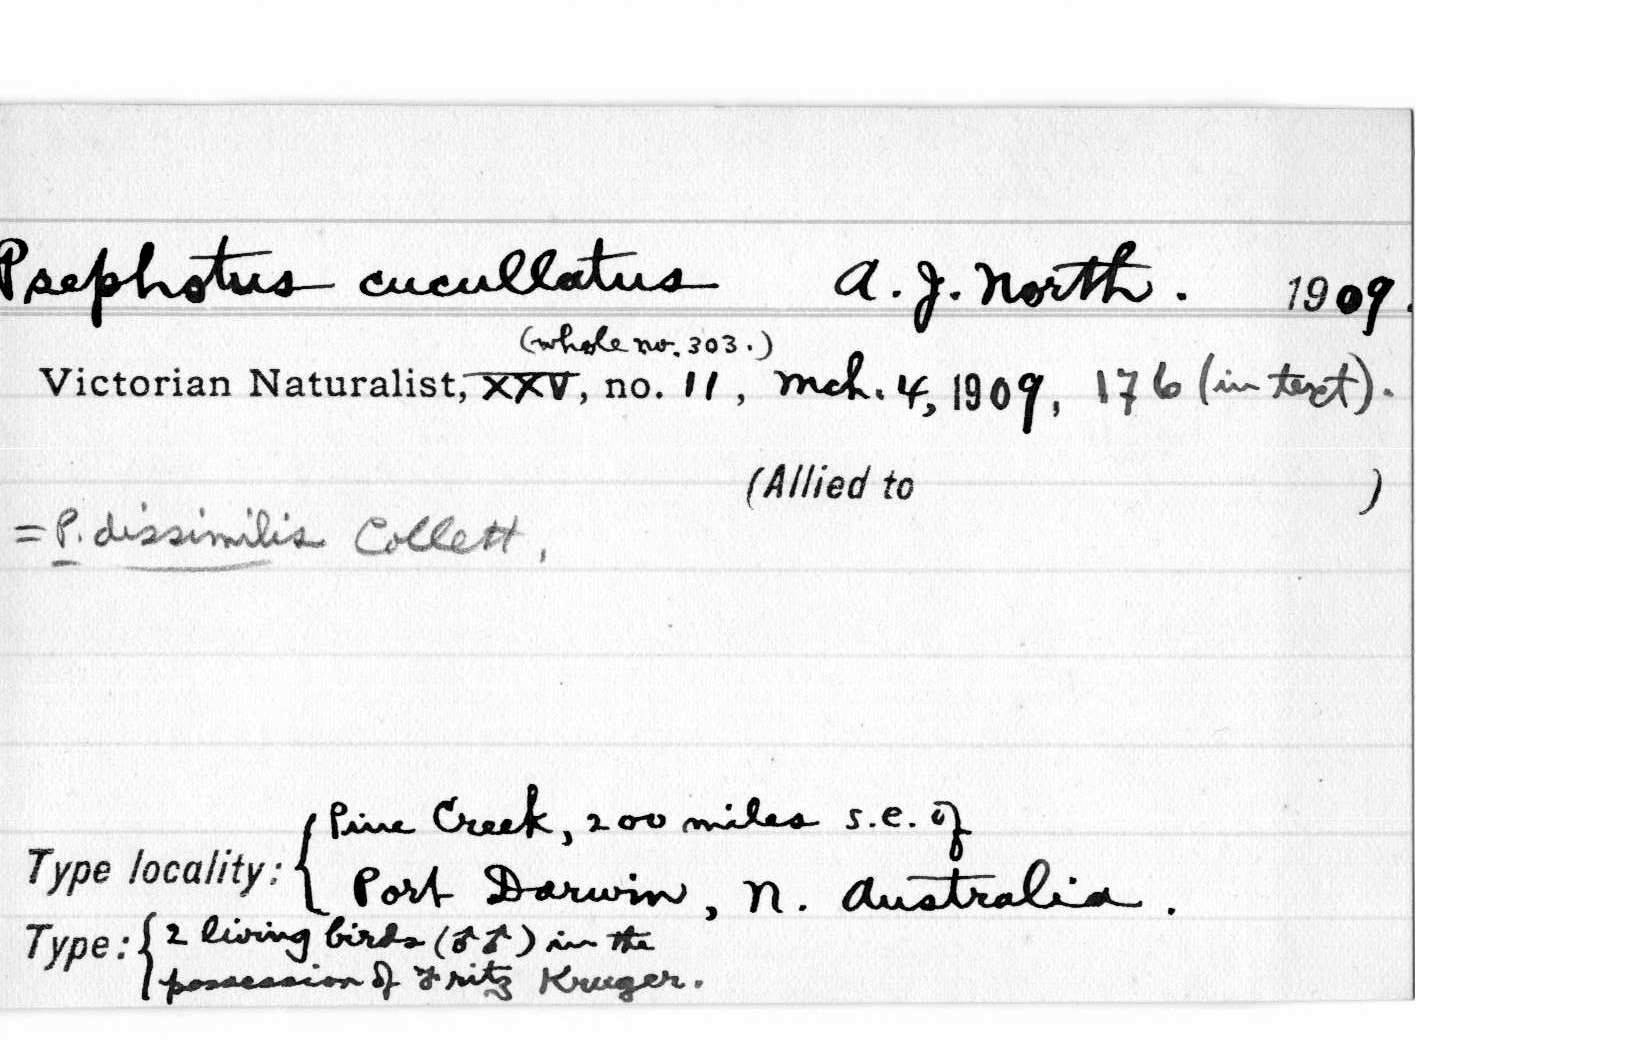 Psephotus cucullatus A. J. North. 1909.
(whole no. 303.)
Victorian Naturalist, XXV, no. 11, Mch. 4, 1909, 176 (in text).
(Allied to )
= P. dissimilis Collett,
Pine Creek, 200 miles s.e. of
Type locality: { Port Darwin, N. Australia.
Type: { 2 living birds (♂♂) in the
possession of Fritz Kruger.